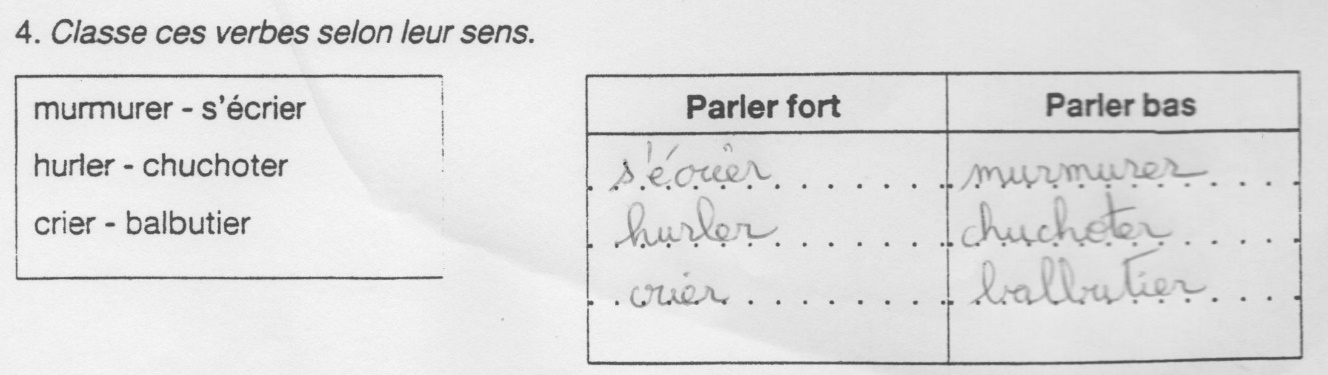 4. Classe ces verbes selon leur sens.
murmurer - s'écrier
hurler - chuchoter
crier - balbutier
Parler fort Parler bas
s'écrier murmurer
hurler chuchoter
crier balbutier